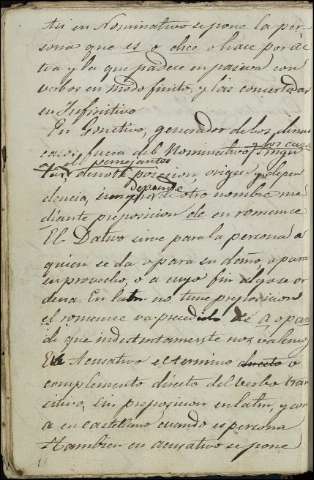 Así en Nominativo se pone la per-
sona que es o dice o hace por ac-
tiva y la que padece en pasiva con
verbos en modo finito, y las concertadas
en Infinitivo
En Genitivo, generador de los demas
casos, fuera del Nominativo,
y sus semejantes
denota posesion origen y depen
depende
dencia, de otro nombre me
diante preposicion de en romance
El Dativo sirve para la persona a
quien se da o para su daño, o para
su provecho, o a cuyo fin algo se or
dena. En latin no tiene preposicion
el romance va precedido de a o para
de que indistintamente nos valemos
El Acusativo es termino directo o
complemento directo del verbo tran
sitivo, sin preposicion en latin, y con
a en castellano cuando es persona
Tambien en acusativo se pone